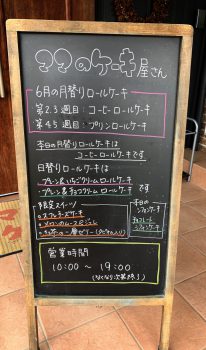 ココのケーキ屋さん
6月の月替りロールケーキ
第2.3週目：コーヒーロールケーキ
第4.5週目：プリンロールケーキ
本日の月替りロールケーキは
コーヒーロールケーキです
日替りロールケーキは
プレーン&いちごクリームロールケーキ
プレーン&チョコクリームロールケーキ です
限定スイーツ
○スフレチーズケーキ
○メロンのムース&ジュレ
本日の
シフォンケーキ
シフォンケーキ
営業時間
10:00 〜 19:00
(なくなり次第終了)